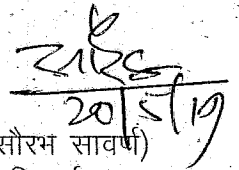 सौरभ
20/5/19
(सौरभ सावर्ण)